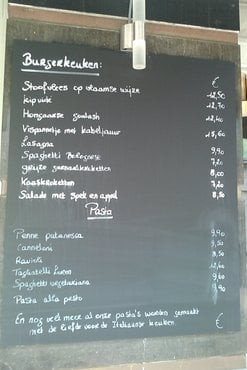 Burgerkeuken: €
Stoofvlees op vlaamse wijze 12,50
kip 12,70
Hongaarse goulash 12,40
Vispannetje met kabeljauw 15,60
Lasagna 9,90
Spaghetti Bolognese 7,20
grijze garnaalkroketten 8,00
Kaaskroketten 7,20
Salade met spek en appel 8,50
Pasta
€
Penne putanesca 9,90
Canneloni 8,90
Ravioli
Tagliatelli
Spaghetti vegetariana
Pasta alla pesto
En nog veel meer al onze pasta's worden gemaakt
met de liefde voor de Italiaanse keuken.